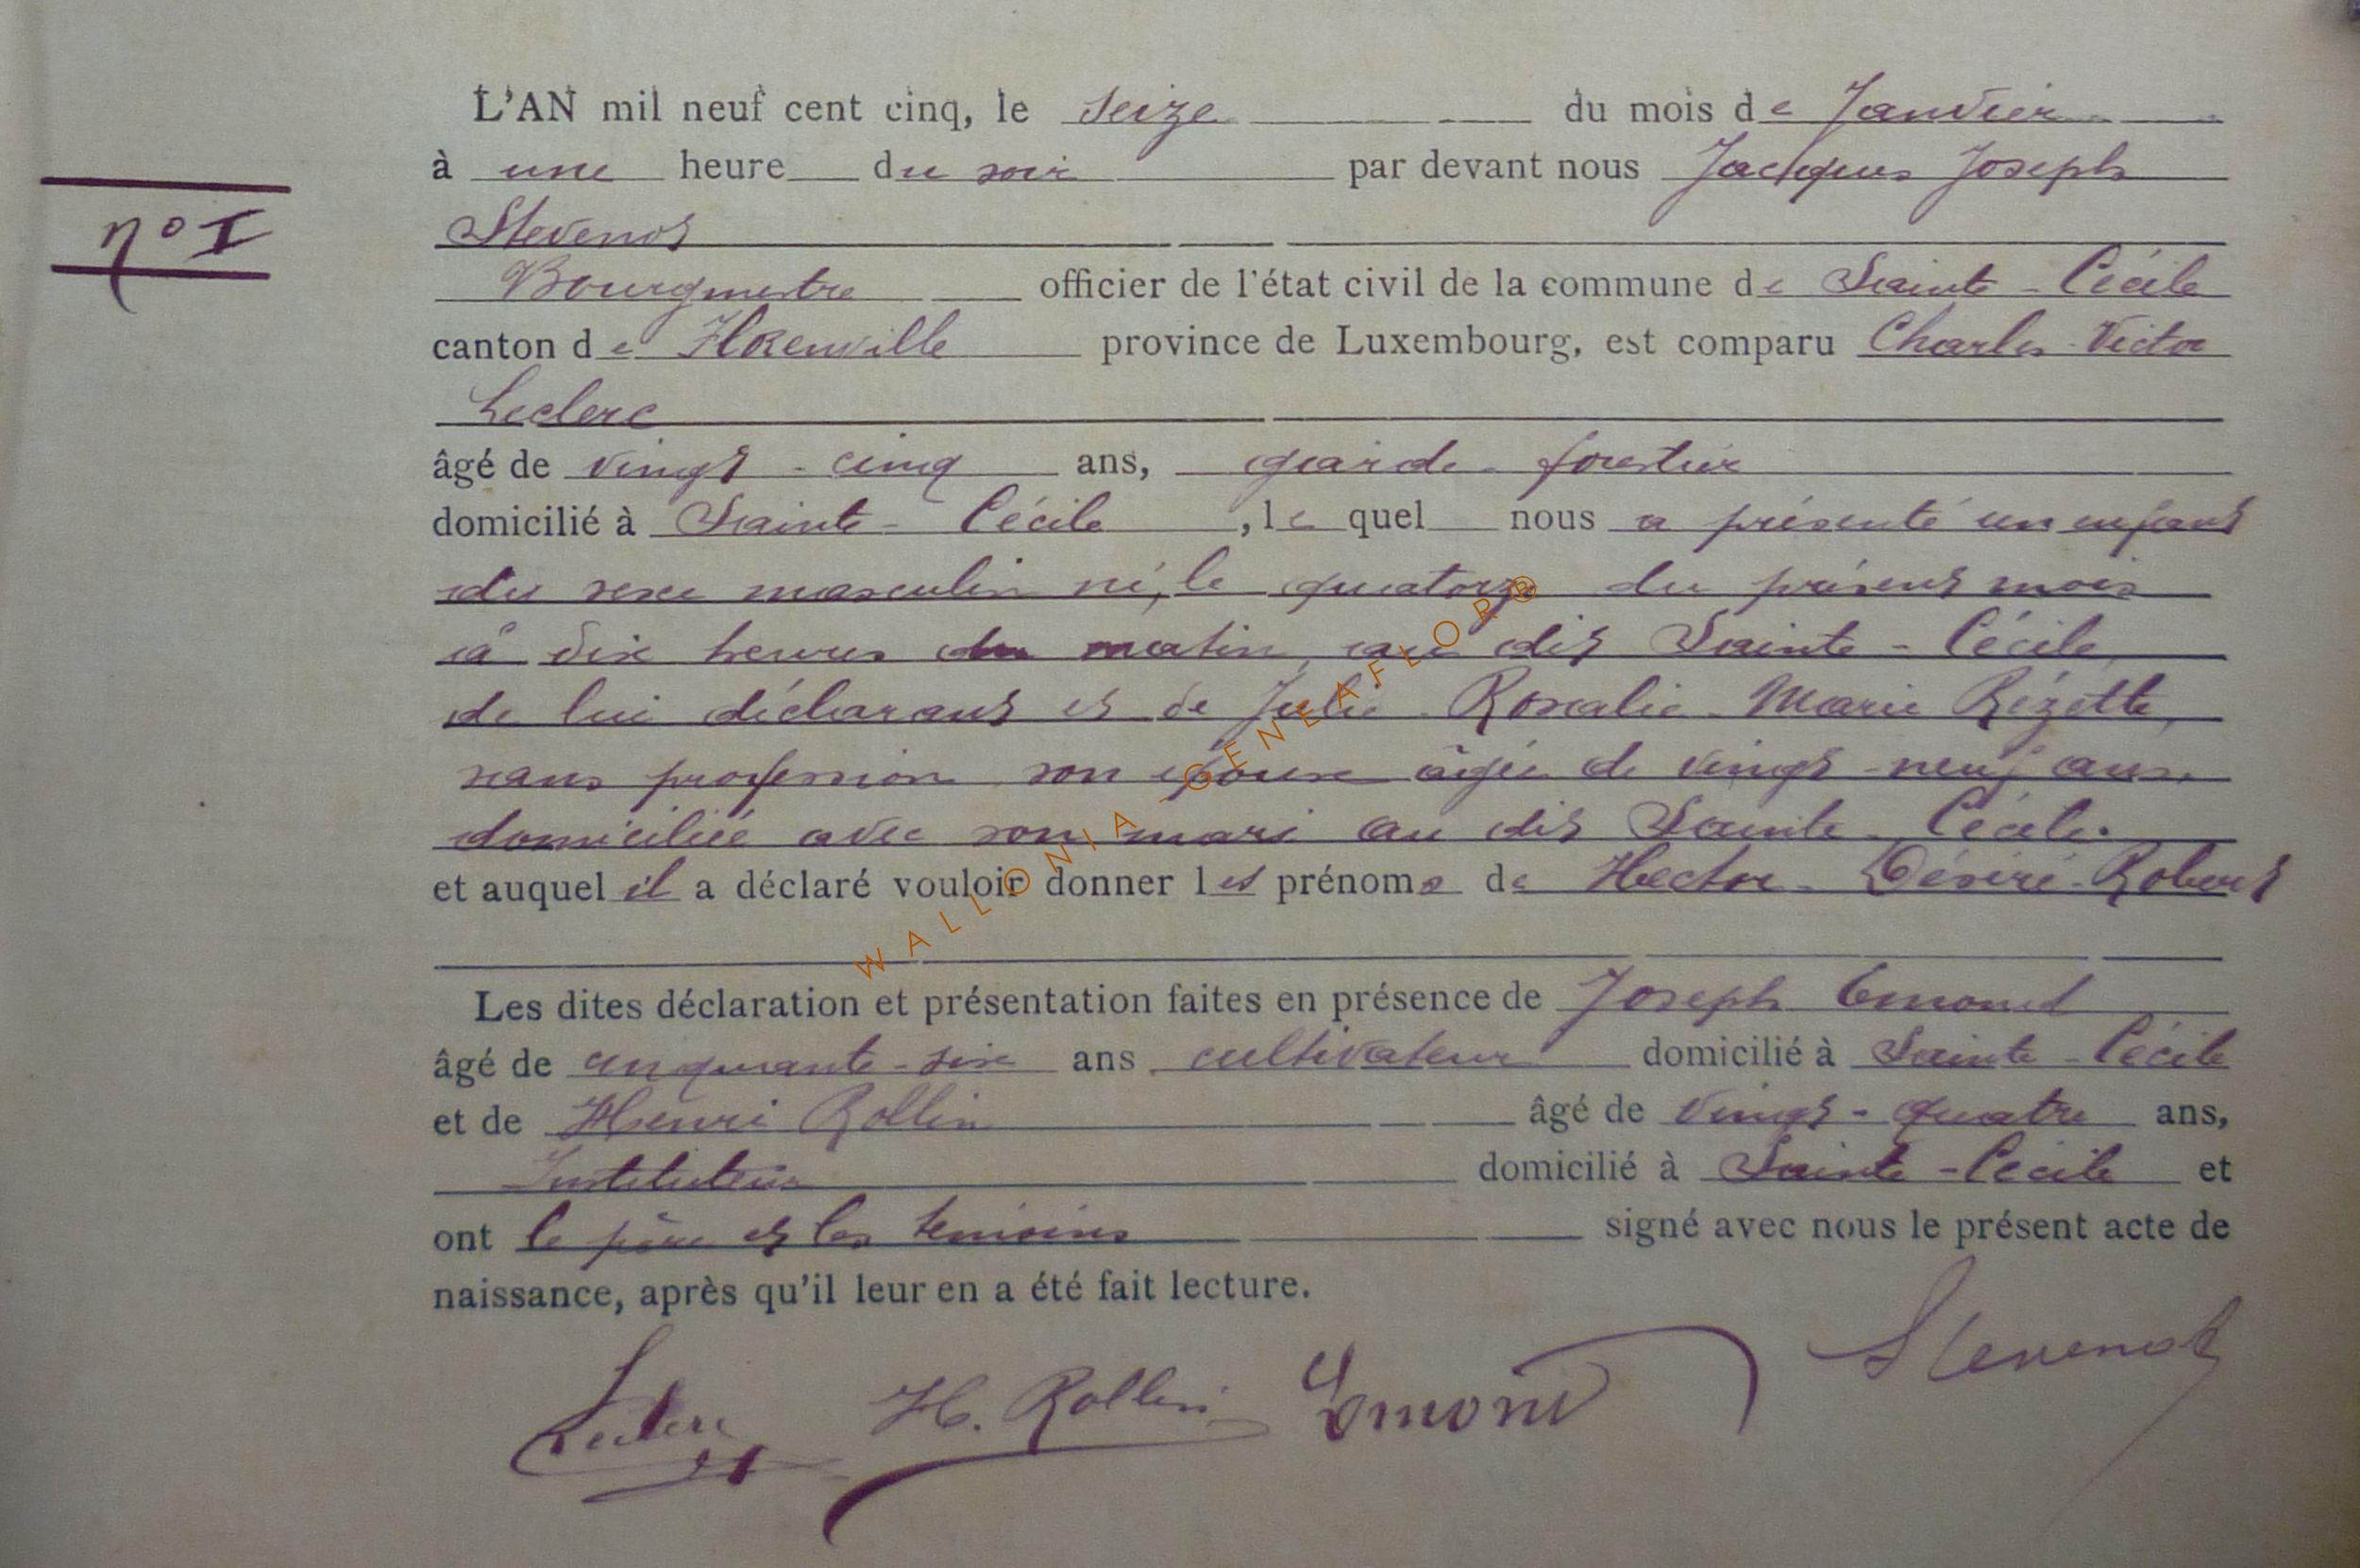 L'AN mil neuf cent cinq, le seize du mois de Janvier
à une heure du soir par devant nous Jacques Joseph
n° I
Stevenot
Bourgmestre officier de l'état civil de la commune de Sainte-Cécile
canton de Florenville province de Luxembourg, est comparu Charles Victor
Leclerc
âgé de vingt-cinq ans, garde forestier
domicilié à Sainte-Cécile, le quel nous a présenté un enfant
du sexe masculin né, le quatorze du présent mois
à dix heures du matin, au dit Sainte-Cécile,
de lui déclarant et de Julie Rosalie Marie Rézette,
sans profession son épouse âgée de vingt-neuf ans,
domiciliée avec son mari au dit Sainte-Cécile.
et auquel il a déclaré vouloir donner les prénoms de Hector-Désiré-Robert
Les dites déclaration et présentation faites en présence de Joseph Emond
âgé de cinquante-six ans, cultivateur domicilié à Sainte-Cécile
et de Henri Rollin âgé de vingt-quatre ans,
Instituteur domicilié à Sainte-Cécile et
ont le père et les temoins signé avec nous le présent acte de
naissance, après qu'il leur en a été fait lecture.
Leclerc H. Rollin Emond Stevenot
WALLONIA-GENEAFLOR®